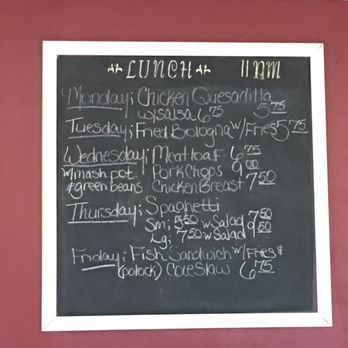 LUNCH 11AM
Monday; Chicken Quesadilla
w/salsa 6.75 5.75
Tuesday; Fried Bologna w/Fries 5.75
Wednesday; Meatloaf 6.75
w/mash pot. Pork Chops 9.00
& green beans Chicken Breast 7.50
Thursday; Spaghetti
Sm; 5.50 w Salad 7.50
Lg; 7.50 w Salad 9.50
Friday; Fish Sandwich w/Fries &
(polock) Coleslaw 6.75